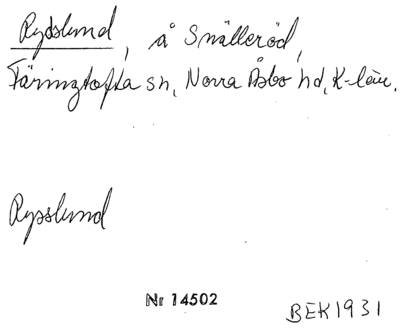 Rydslund, å Snälleröd,
Färingtofta sn, Norra Åsbo hd, K-län.
Rysslund
Nr 14502
BEK1931